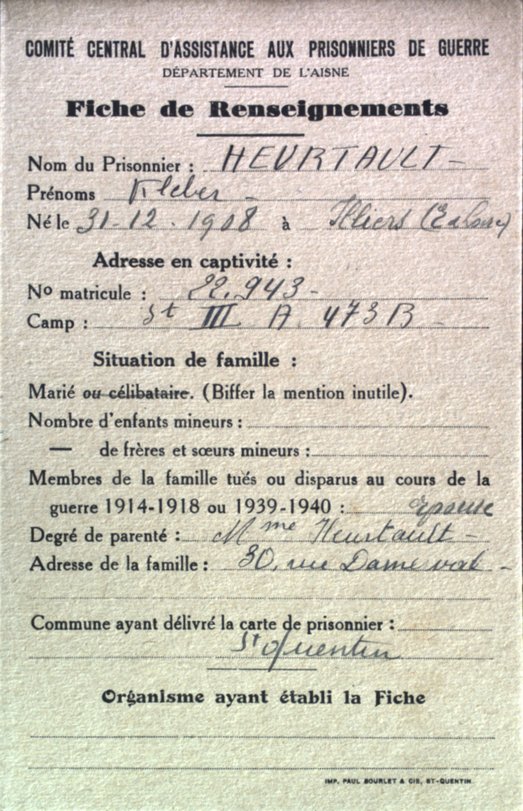 COMITÉ CENTRAL D'ASSISTANCE AUX PRISONNIERS DE GUERRE
DÉPARTEMENT DE L'AISNE
Fiche de Renseignements
Nom du Prisonnier : HEURTAULT -
Prénoms Kléber -
Né le 31-12-1908 à Illiers
Adresse en captivité :
Nº matricule : 22.943 -
Camp : St III A 473 B -
Situation de famille :
Marié ou célibataire. (Biffer la mention inutile).
Nombre d'enfants mineurs :
— de frères et sœurs mineurs :
Membres de la famille tués ou disparus au cours de la
guerre 1914-1918 ou 1939-1940 : Epouse
Degré de parenté : Mme Heurtault -
Adresse de la famille : 30, rue Dameval -
Commune ayant délivré la carte de prisonnier :
St Quentin
Organisme ayant établi la Fiche
IMP. PAUL BOURLET & CIE, ST-QUENTIN